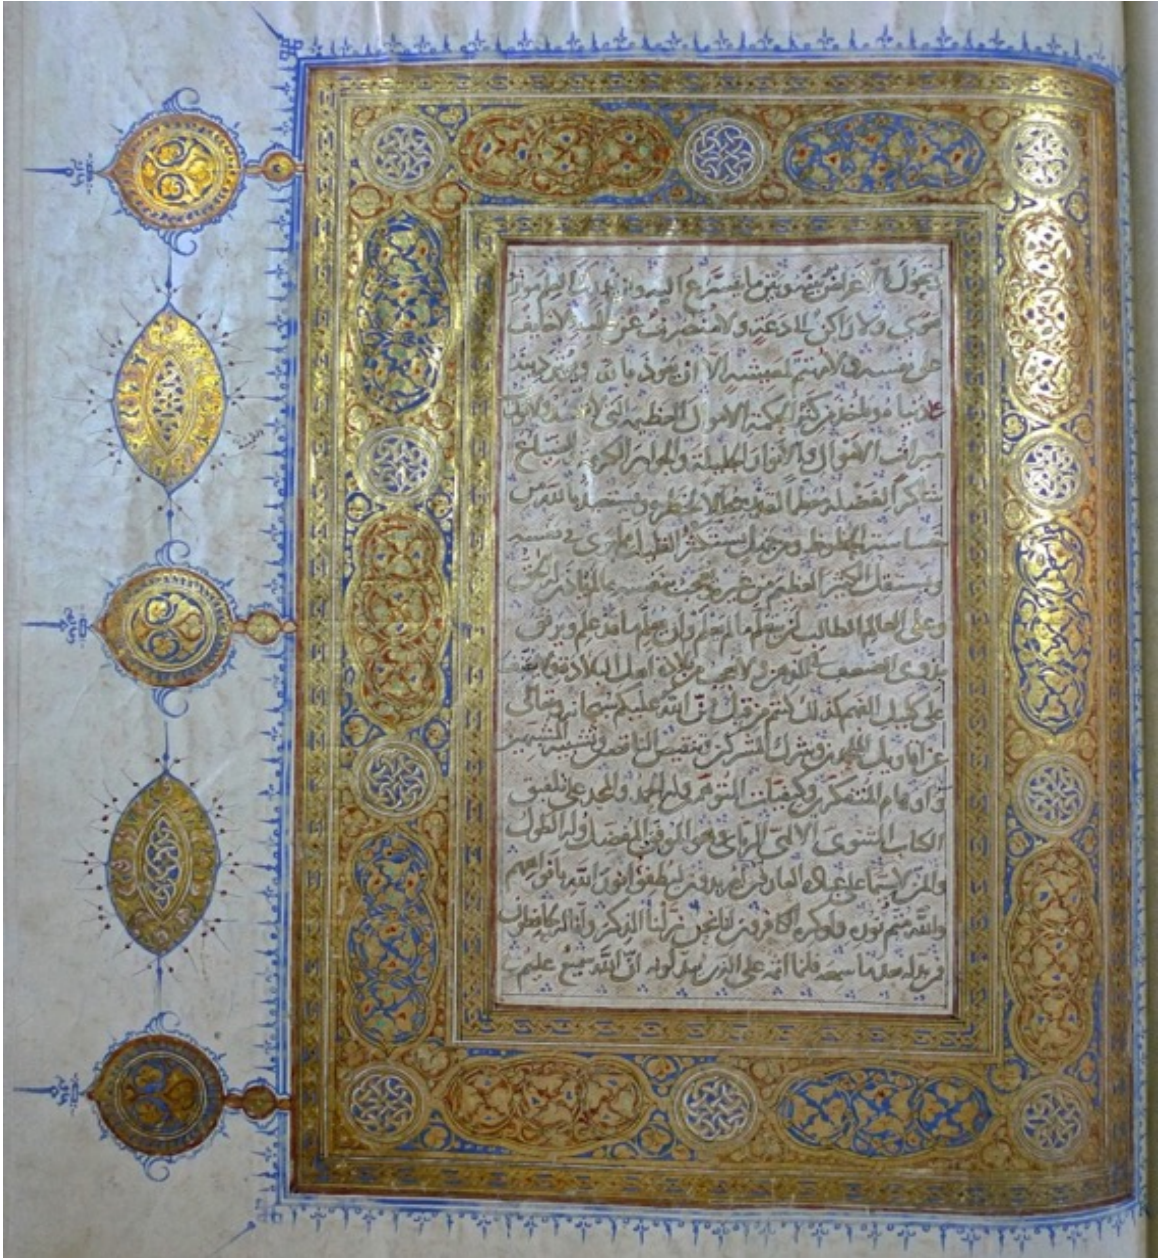 يحول الاعراض بينه وبين ما يتسرع اليه ولن يدرك العلم موثر
هوى ولا راكن الى دعة ولا منصرف عن طلبه او خايف
على نفسه ولا مهتم لمعيشته الا ان يعوذ بالله ويوثر دينه
على دنياه وياخذ من كنز الحكمة الاموال العظيمة التى لا تكسد ولا تورث
ميراث الاموال والانوار الجليلة والجواهر الكريمة والضياع
شاكرا لفضله معظما لقدره مجللا لخطره ويستعيذ بالله من
خساسة الحظوظ ومن جهل يستكثر القليل مما يرى فى نفسه
ويستقل الكثير العظيم من غيره ويعجب بنفسه بما لم ياذن له الحق
وعلى العالم الطالب ان يتعلم ما لم يعلم وان يعلم ما قد علم ويرفق
بذوى الضعف فى الذهن ولا يعجب من بلادة اهل البلادة ولا يعنف
على كليل الفهم كذلك كنتم من قبل فمن الله عليكم سبحانه وتعالى
عن اقاويل الملحدين وشرك المشركين وتنقيص الناقصين وتشبيه المشبهين
واوهام المتفكرين وكيفيات المتوهمين وله الحمد والمجد على تلفيق
الكتاب المثنوى الالهى الربانى وهو الموفق المتفضل وله الطول
والمن لا سيما على عباده العارفين يريدون ليطفئوا انوار الله بافواههم
والله متم نوره ولو كره الكافرون انا نحن نزلنا الذكر وانا له لحافظون
فمن بدله بعد ما سمعه فانما اثمه على الذين يبدلونه ان الله سميع عليم